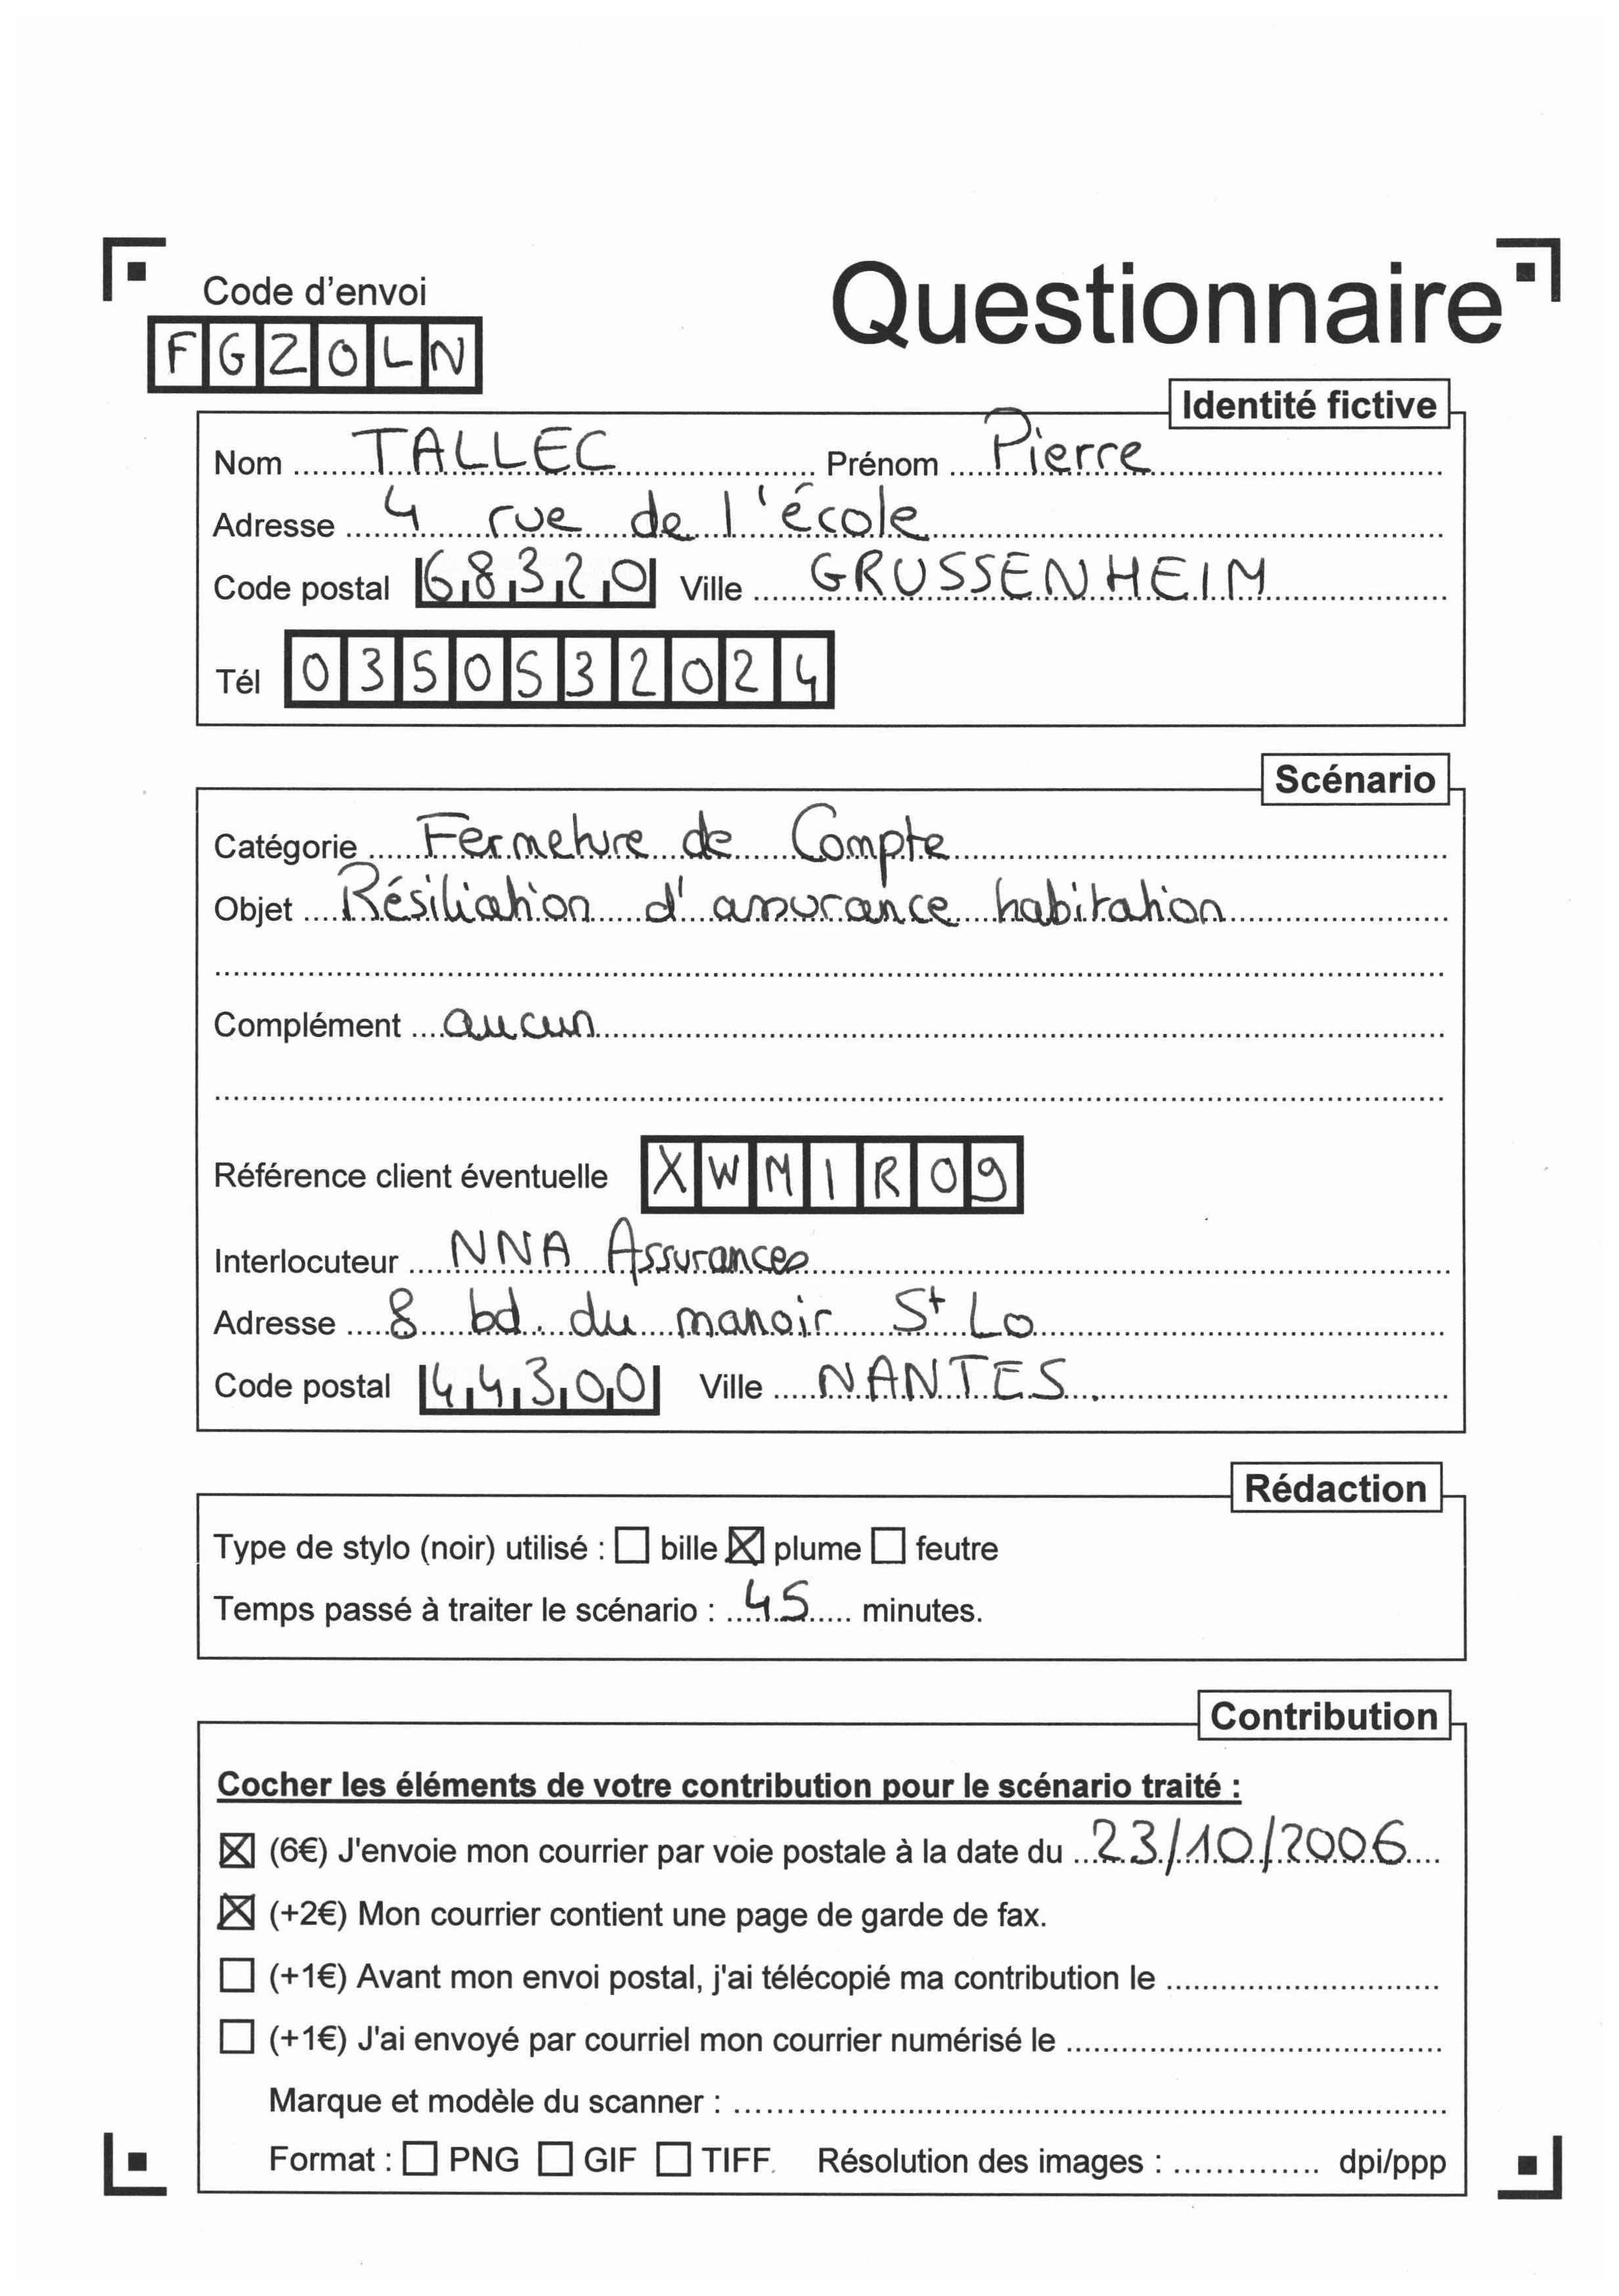 Code d'envoi
Questionnaire
FGZOLN
Identité fictive
Nom TALLEC Prénom Pierre
Adresse 4 rue de l'école
Code postal 68320 Ville GRUSSENHEIM
Tél 0350532024
Scénario
Catégorie Fermeture de Compte
Objet Résiliation d'assurance habitation
Complément aucun
Référence client éventuelle XWMIR09
Interlocuteur NNA Assurances
Adresse 8 bd. du manoir St Lo
Code postal 44300 Ville NANTES.
Rédaction
Type de stylo (noir) utilisé : ☐ bille ☒ plume ☐ feutre
Temps passé à traiter le scénario : 45 minutes.
Contribution
Cocher les éléments de votre contribution pour le scénario traité :
☒ (6€) J'envoie mon courrier par voie postale à la date du 23/10/2006
☒ (+2€) Mon courrier contient une page de garde de fax.
☐ (+1€) Avant mon envoi postal, j'ai télécopié ma contribution le
☐ (+1€) J'ai envoyé par courriel mon courrier numérisé le
Marque et modèle du scanner :
Format : ☐ PNG ☐ GIF ☐ TIFF. Résolution des images : dpi/ppp